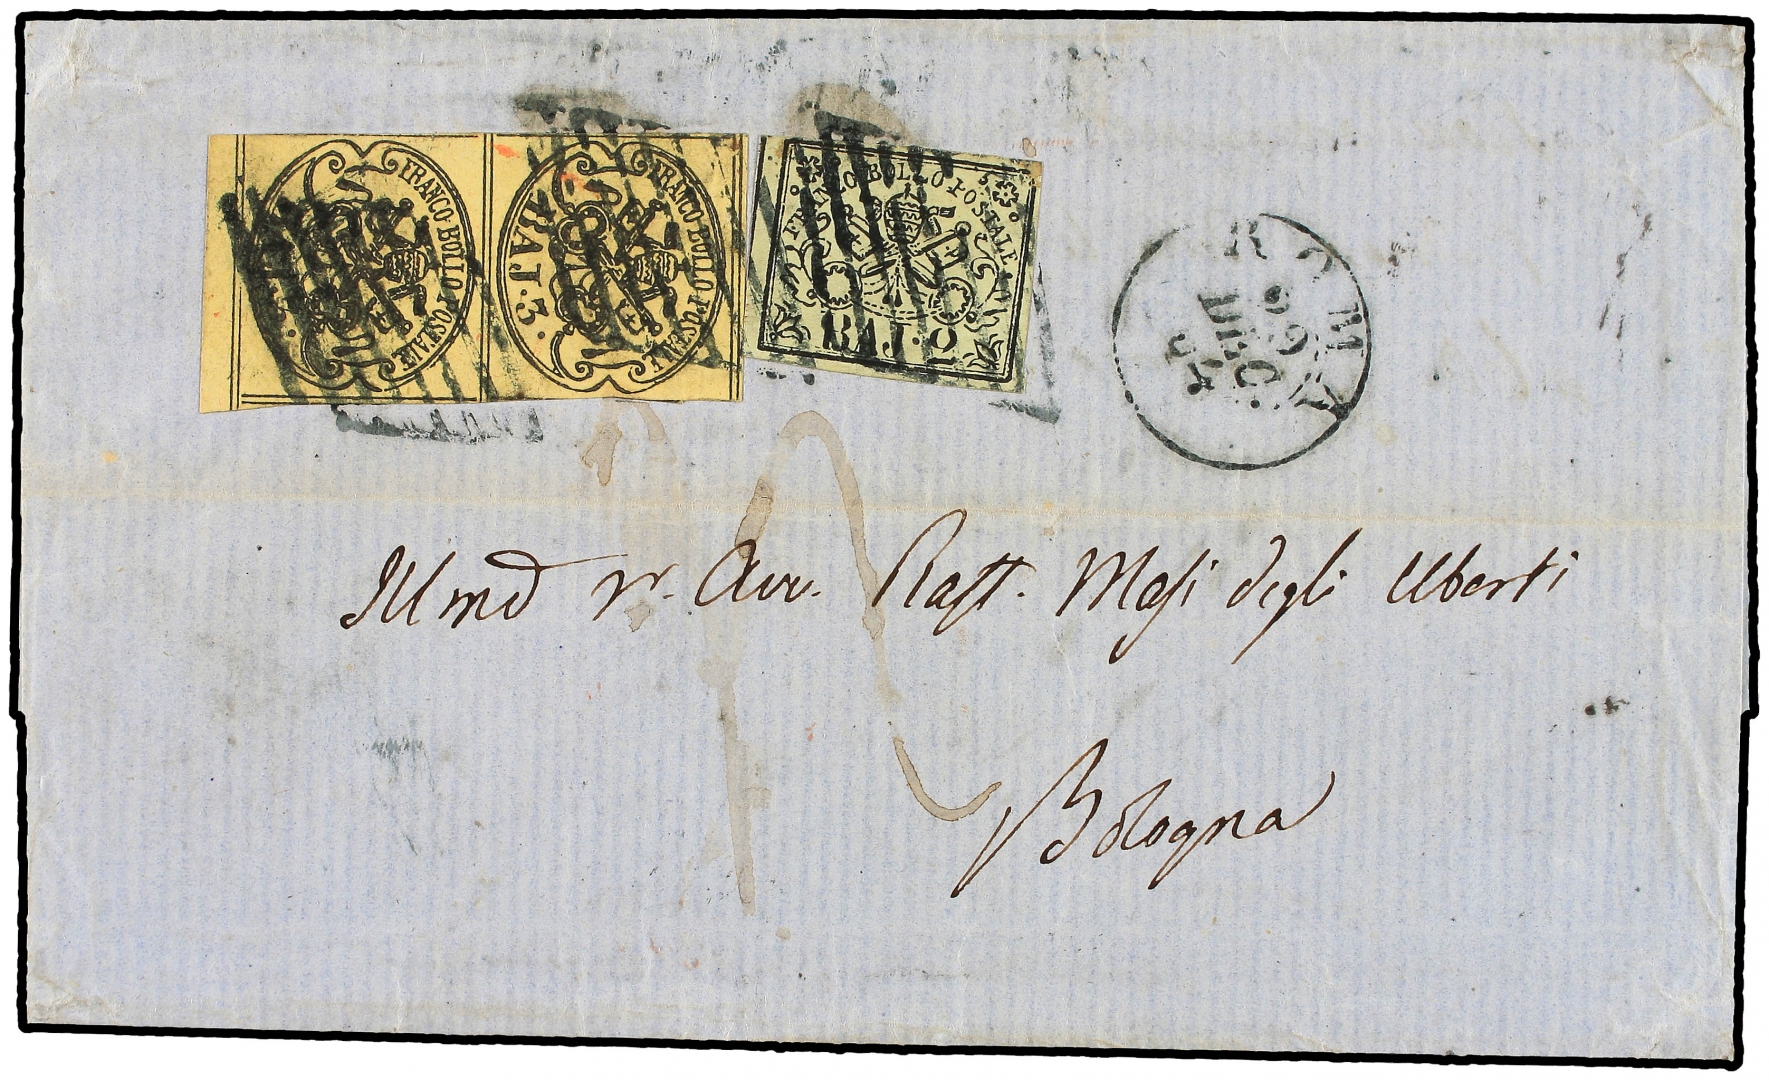 FRANCO BOLLO POSTALE
FRANCO BOLLO POSTALE
BAJ. 3.
FRANCO BOLLO POSTALE
BAJ. 2
ROMA
29
DEC
54
Illmo Sr. Avv. Raff. Masi degli Uberti
Bologna